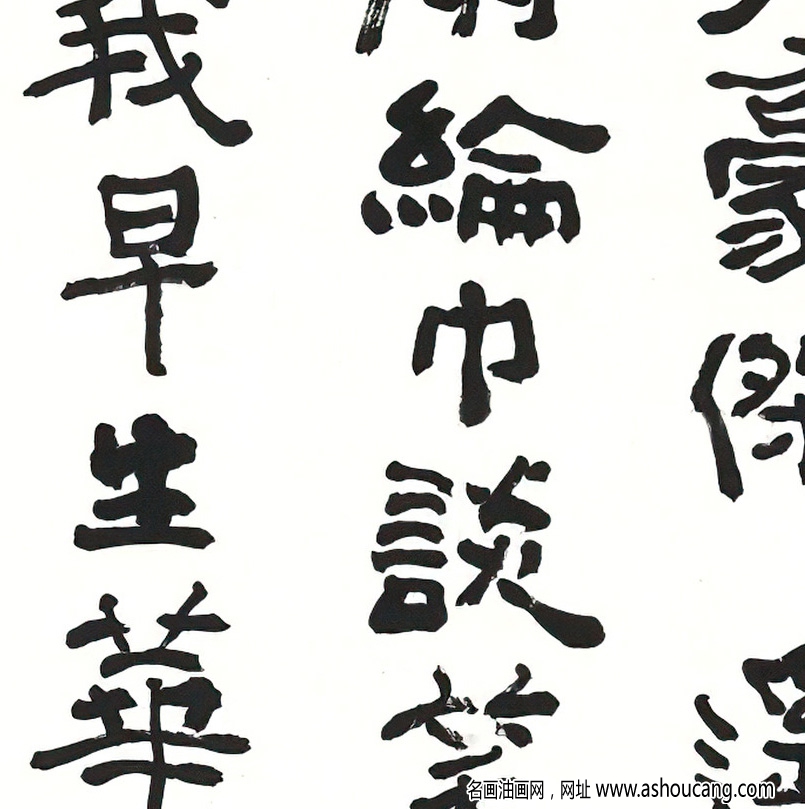 豪傑
綸巾談笑
我早生華
名画油画网，网址 www.ashoucang.com